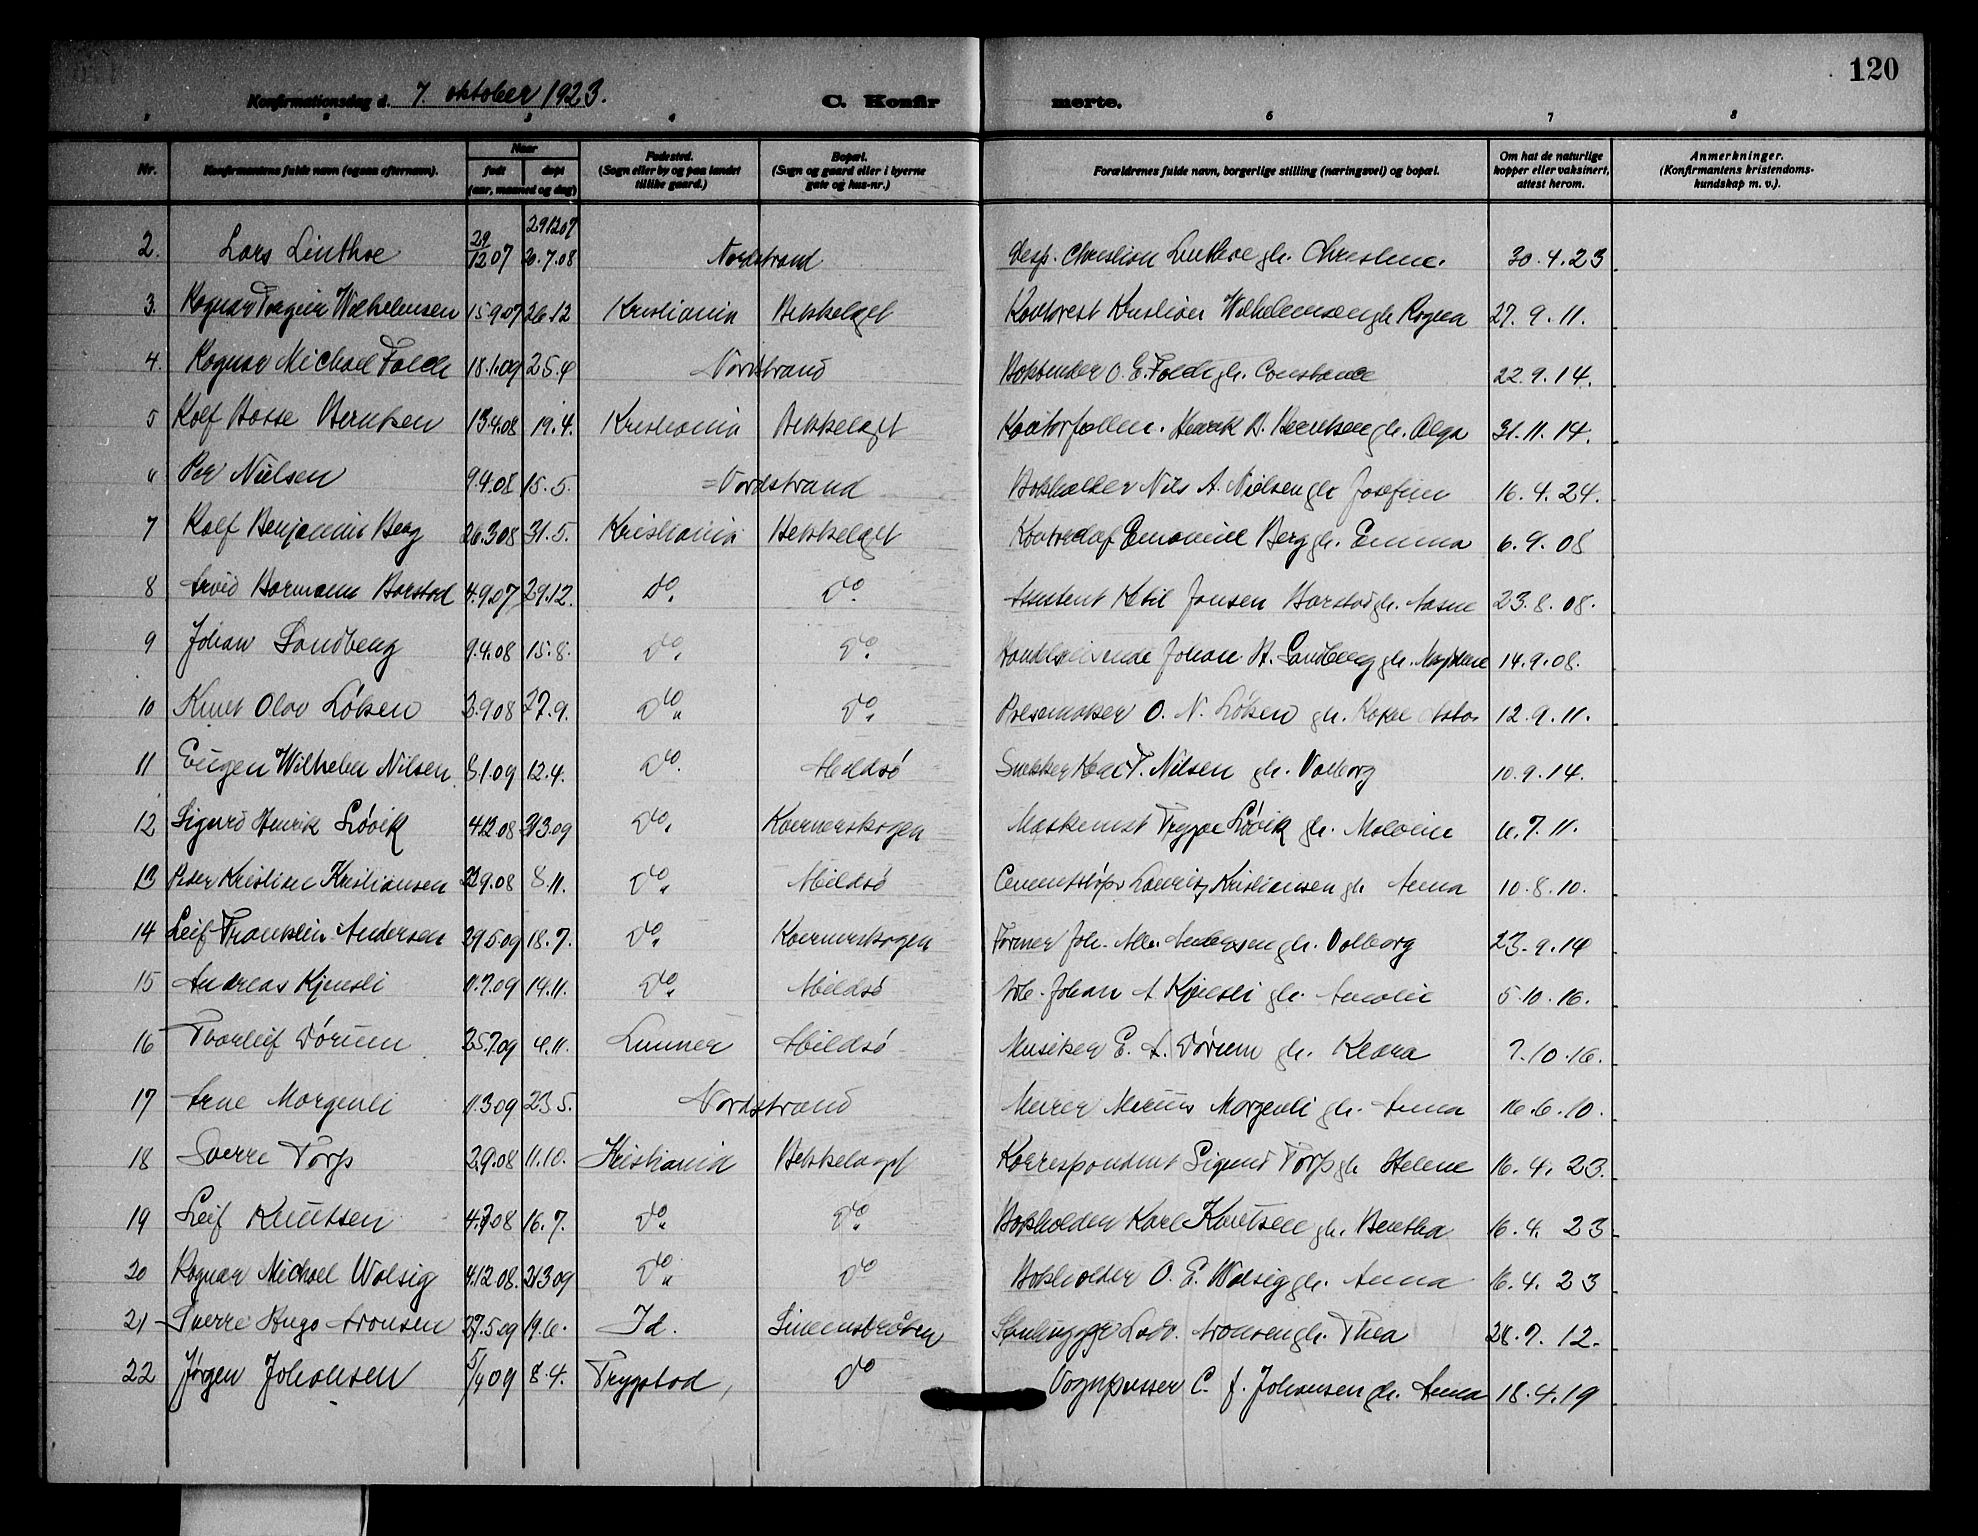 120
Konfirmationsdag d. 7. oktober 1923. C. Konfir merte.
1 2 3 4 6 7 8
Nr. Konfirmantens fulde navn (ogsaa efternavn). Naar født døpt (aar, maaned og dag) Fødested. (Sogn eller by og paa landet tillike gaard.) Bopæl. (Sogn og gaard eller i byerne gate og hus-nr.) Forældrenes fulde navn, borgerlige stilling (næringsvei) og bopæl. Om hat de naturlige kopper eller vaksinert, attest herom. Anmerkninger. (Konfirmantens kristendoms-kundskap m. v.).
2. Lars Linthoe 29/12 07 29 12 07 20.7.08 Nordstrand Desp. Christian Linthoe gh. Christine. 30.4.23
3. Ragnar Wilhelmsen 15 9 07 26.12 Kristiania Bekkelaget Kristian Wilhelmsen gh. Ragna 27.9.11.
4. Ragnar Michael Foldt 18.1.09 25.4 Nordstrand Bokbinder O. E. Foldt gh. Constance 22.9.14.
5 Rolf Bosse Berntsen 13.4.08 19.4. Kristiania Bekkelaget Henrik B. Berntsen gh. Olga 31.11.14.
6 Per Nielsen 9.4.08 15.5. Nordstrand Bokholder Nils A. Nielsen gh. Josefine 16.4.24.
7 Rolf Benjamin Berg 26.3 08 31.5. Kristiania Bekkelaget Emanuel Berg gh. Emma 6.9.08
8 Arvid Bormann Borstad 4.9.07 29.12. do. do. Ketil Jonsen Borstad gh. Aasne 23.8.08.
9 Johan Sandberg 9.4.08 15.8. do. do. Handelsreisende Johan H. Sandberg gh. 14.9.08.
10 Knut Olav Løken 3.9 08 27.9. do. do. Pølsemaker O. N. Løken gh. 12.9.11.
11 Eugen Wilhelm Nilsen 8.1.09 12.4. do. Abildsø Snekker Karl T. Nilsen gh. Valborg 10.9.14.
12 Sigurd Henrik Løvik 4.12.08 21 3.09 do. Kværnerskogen Maskinist Trygve Løvik gh. Malvine 6.7.11.
13 Peter Kristian Kristiansen 9.08 8.11. do. Abildsø Cementstøper Lauritz Kristiansen gh. Anna 10.8.10.
14 Leif Franklin Andersen 29.5 09 18.7. do. Kværnerskogen Former Joh. Alb. Andersen gh. Valborg 23.9.14
15 Andreas Kjensli 11.7.09 14.11. do. Abildsø Arb. Johan A Kjensli gh. Amalie 5.10.16.
16 Thorleif Dørum 25.7.09 4.11. Lunner Abildsø Musiker E. A. Dørum gh. Klara 7.10.16.
17 Arne Morgenli 11.3 09 23.5. Nordstrand Murer Marius Morgenli gh. Anna 16.6.10.
18 Sverre Torp 2.9.08 11.10. Kristiania Bekkelaget Korrespondent Sigurd Torp gh. Helene 16.4.23.
19 Leif Knutsen 4.7 08 16.7. do. do. Bokholder Karl Knutsen gh. Bertha 16.4.23
20 Ragnar Michael Wolsig 4.12 08. 21.3 09 do. do Bokholder O. E. Wolsig gh. Anna 16.4.23
21 Sverre Hugo Aronsen 27.5.09 19.6. Id. Simensbråten Stenhugger Ludv. Aronsen gh. Thea 28.7.12.
22 Jørgen Johansen 5/4 09 8.4. Trygstad, do Vognpusser C. J. Johansen gh. Anna 18.4.19